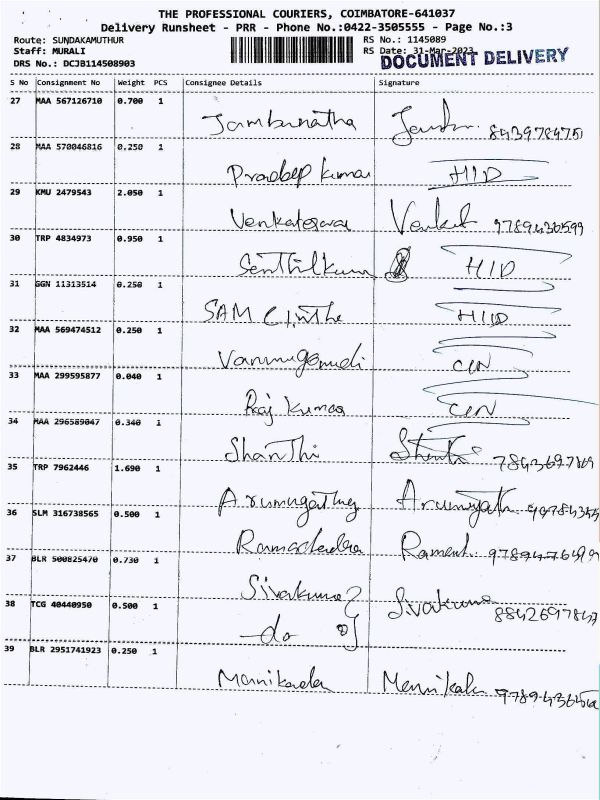 THE PROFESSIONAL COURIERS, COIMBATORE-641037
Delivery Runsheet - PRR - Phone No.:0422-3505555 - Page No.:3
Route: SUNDAKAMUTHUR RS No.: 1145089
Staff: MURALI RS Date: 31-Mar-2023
DOCUMENT DELIVERY
DRS No.: DCJB114508903
S No Consignment No Weight PCS Consignee Details Signature
27 MAA 567126710 0.700 1
Jambunatha 8439784751
28 MAA 570046816 0.250 1
Pradeep kumar HID
29 KMU 2479543 2.050 1
Venkateswar Venkat 9789430599
30 TRP 4834973 0.950 1
Senthilkumar HID
31 GGN 11313514 0.250 1
SAM HID
32 MAA 569474512 0.250 1
CIN
33 MAA 299595877 0.040 1
Raj kumar CIN
34 MAA 296589047 0.340 1
Shanthi
35 TRP 7962446 1.690 1
36 SLM 316738565 0.500 1
37 BLR 500825470 0.730 1
Sivakumar
38 TCG 40440950 0.500 1
-do
39 BLR 2951741923 0.250 1